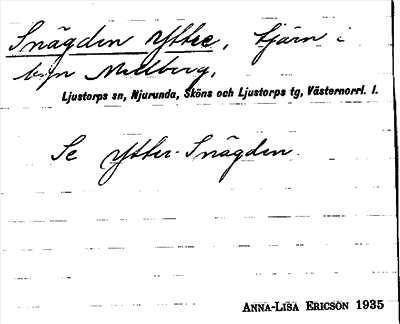 Snägden Yttre, tjärn i
byn Mellberg,
Ljustorps sn, Njurunda, Sköns och Ljustorps tg, Västernorrl. l.
Se Ytter-Snägden.
ANNA-LISA ERICSON 1935